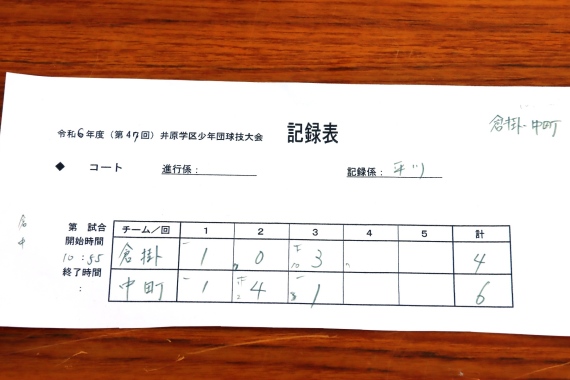 倉掛・中町
令和6年度（第47回）井原学区少年団球技大会 記録表
◆ コート 進行係： 記録係：平川
倉 第 試合 チーム／回 1 2 3 4 5 計
中 開始時間
10：55 倉掛 1 0 3 4
終了時間
： 中町 1 4 1 6